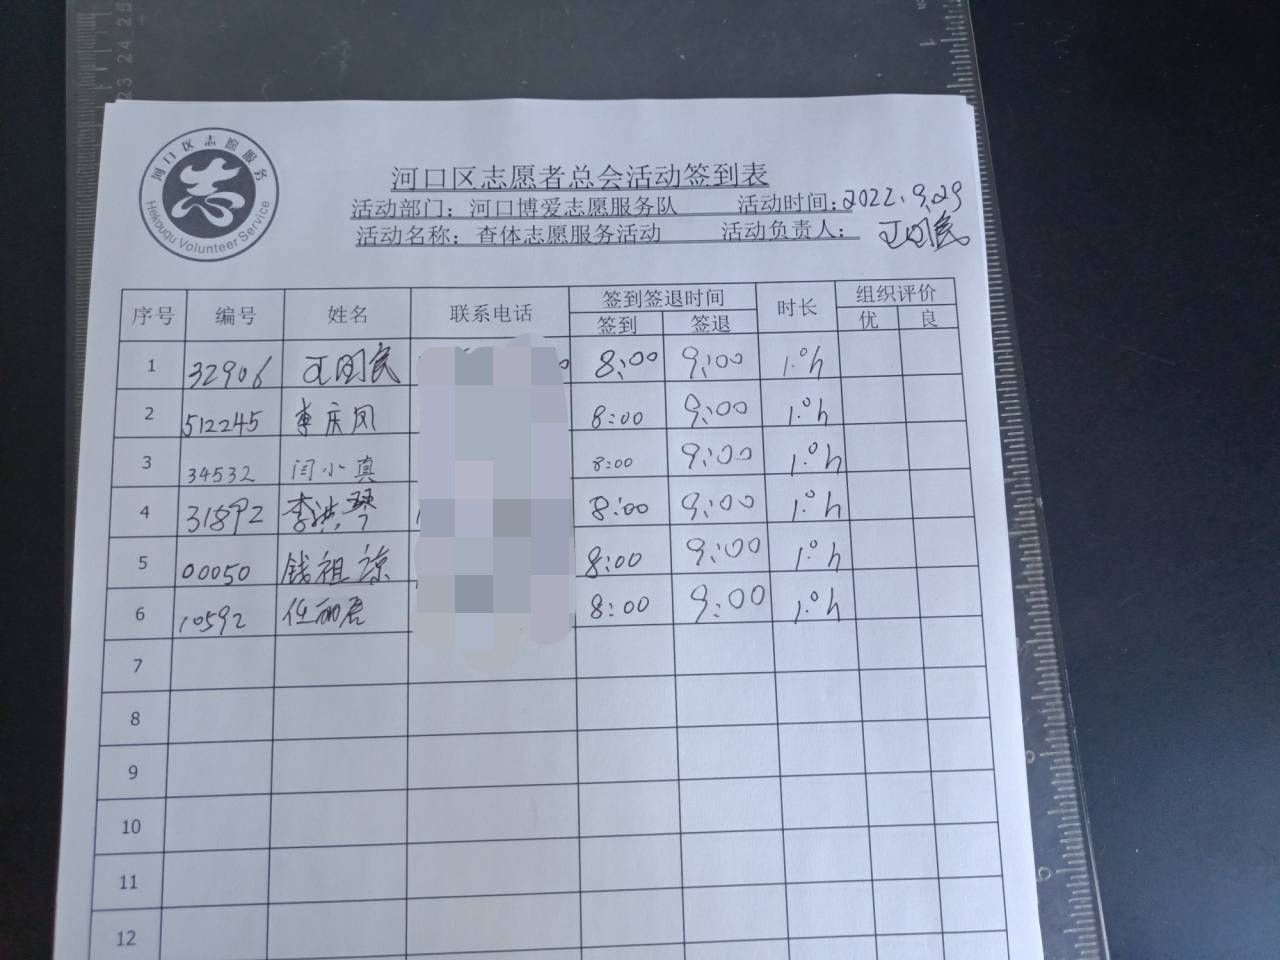 河口区志愿服务
Hekouqu Volunteer Service
河口区志愿者总会活动签到表
活动部门：河口博爱志愿服务队 活动时间：2022.9.29
活动名称：查体志愿服务活动 活动负责人：王国民
序号 编号 姓名 联系电话 签到签退时间 时长 组织评价
签到 签退 优 良
1 32906 王国民 8:00 9:00 1.0h
2 512245 李庆凤 8:00 9:00 1.0h
3 34532 闫小真 8:00 9:00 1.0h
4 31892 李洪琴 8:00 9:00 1.0h
5 00050 钱祖谅 8:00 9:00 1.0h
6 10592 任丽君 8:00 9:00 1.0h
7
8
9
10
11
12